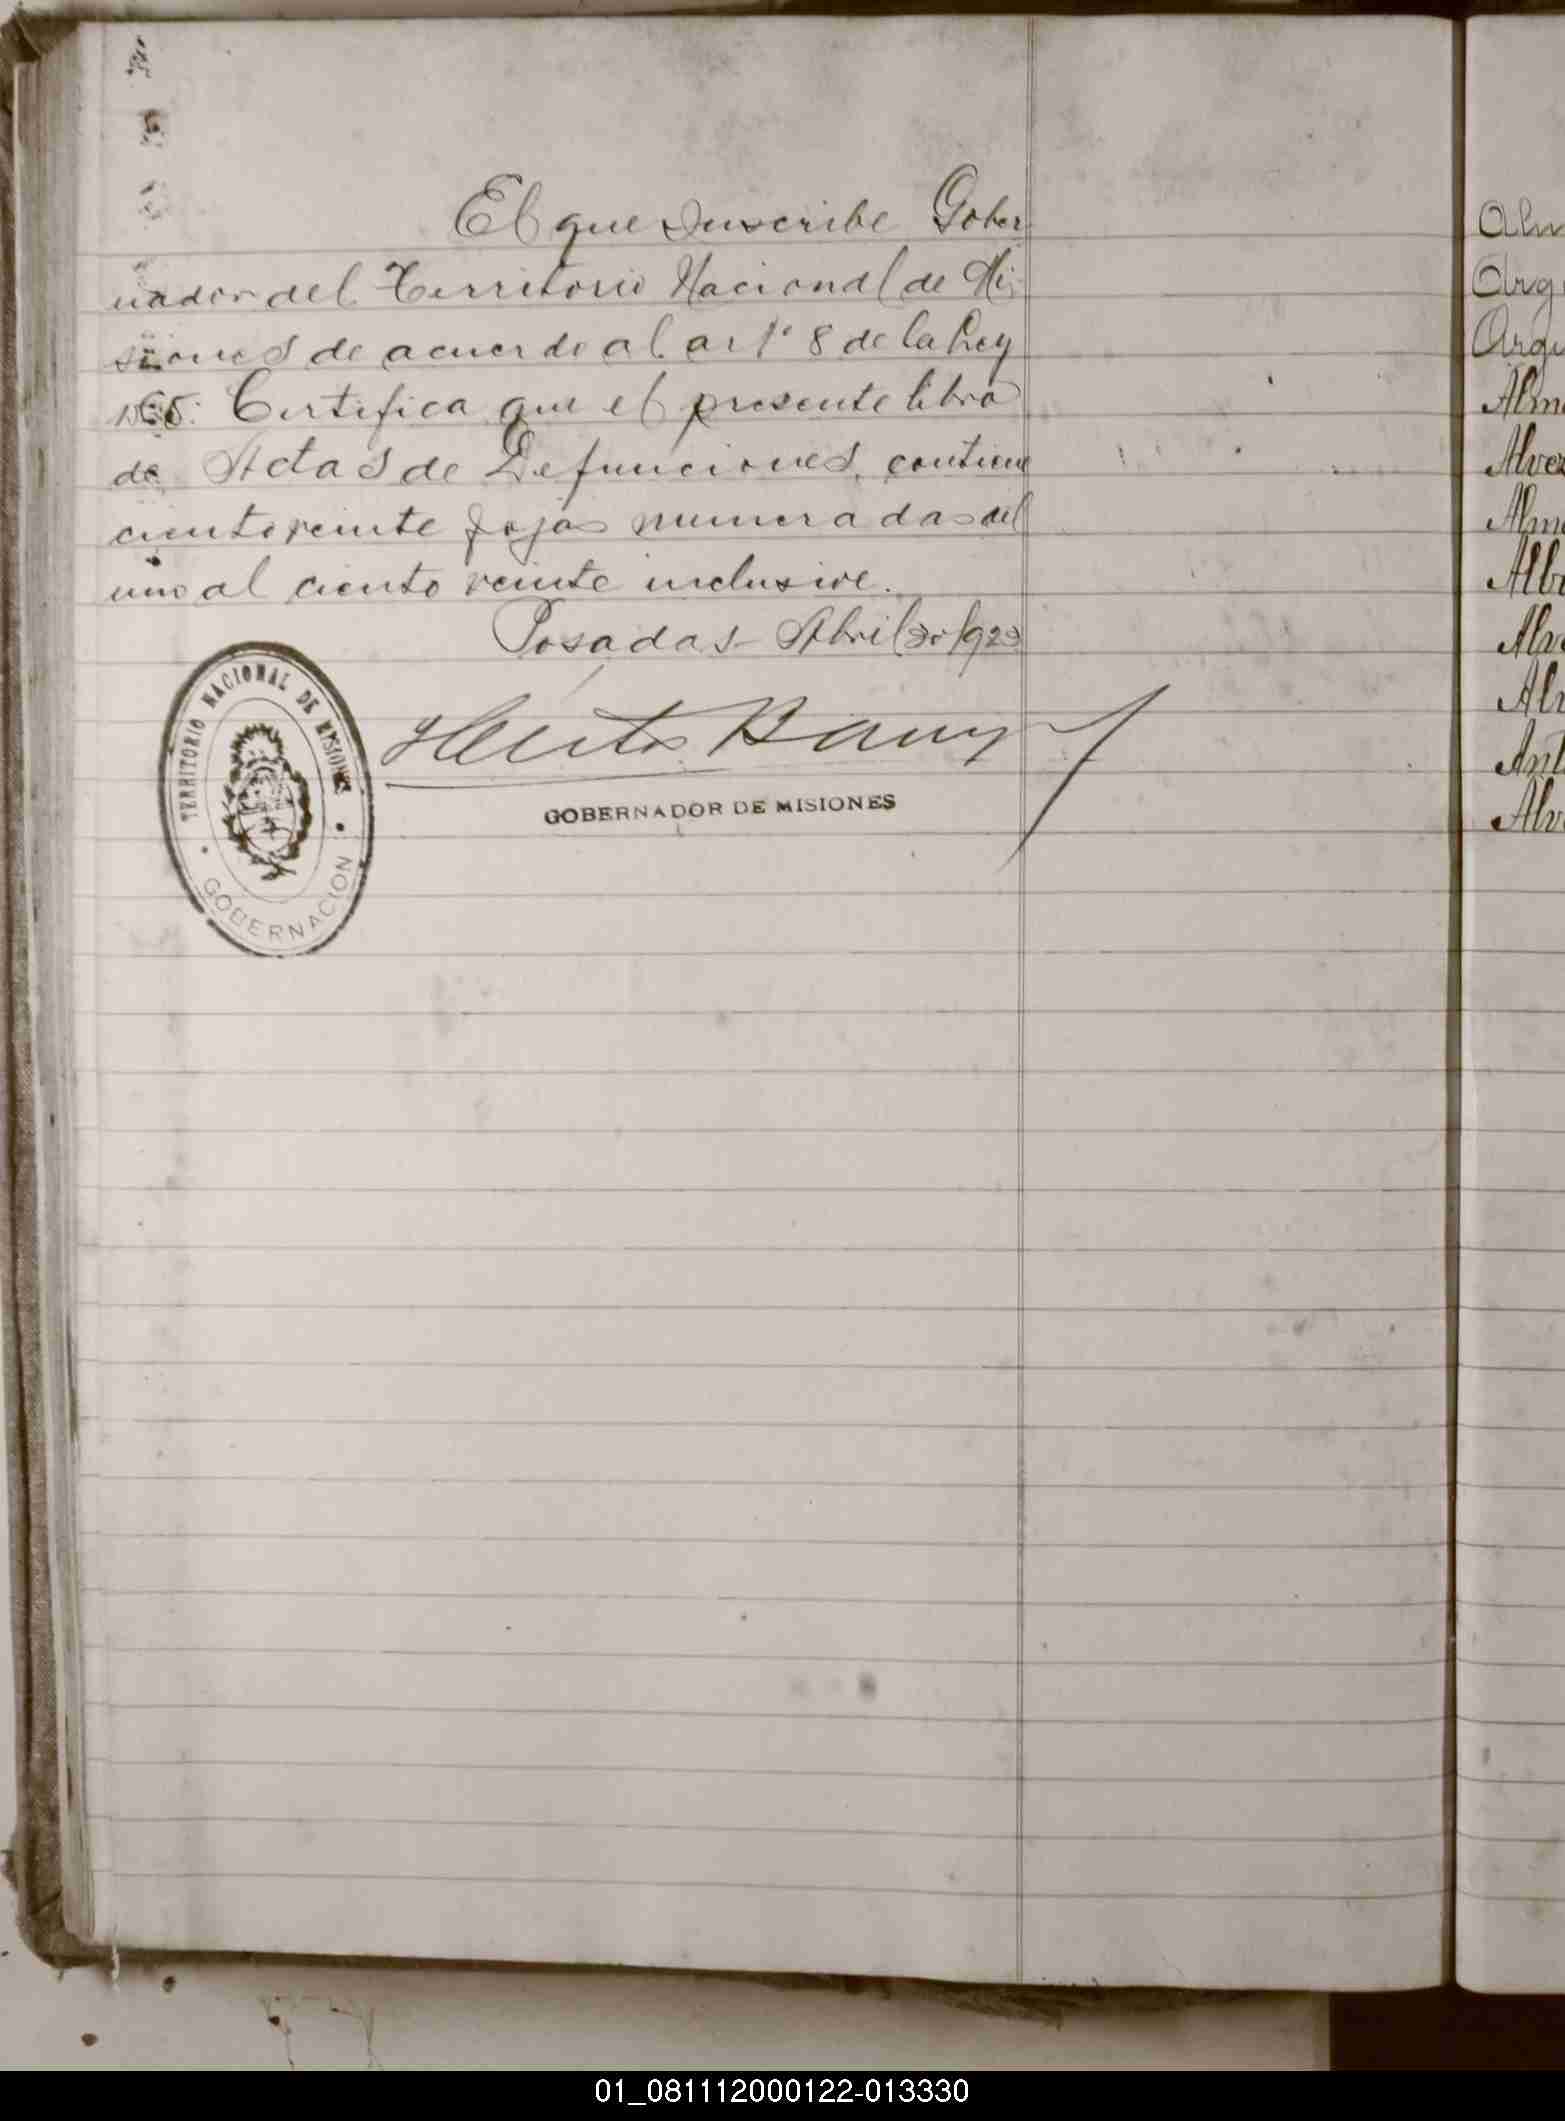 El que suscribe Gober
nador del Territorio Nacional de Mi-
siones de acuerdo al art° 8 de la Ley
1565. Certifica que el presente libro
de Actas de Defunciones, contiene
ciento veinte fojas numeradas del
uno al ciento veinte inclusive.
Posadas Abril 30/923
TERRITORIO NACIONAL DE MISIONES
GOBERNACION
Barreyro
GOBERNADOR DE MISIONES
Alm
Arg
Argu
Alme
Alvez
Alme
Albe
Alve
Alv
Ant
Alve
01_081112000122-013330